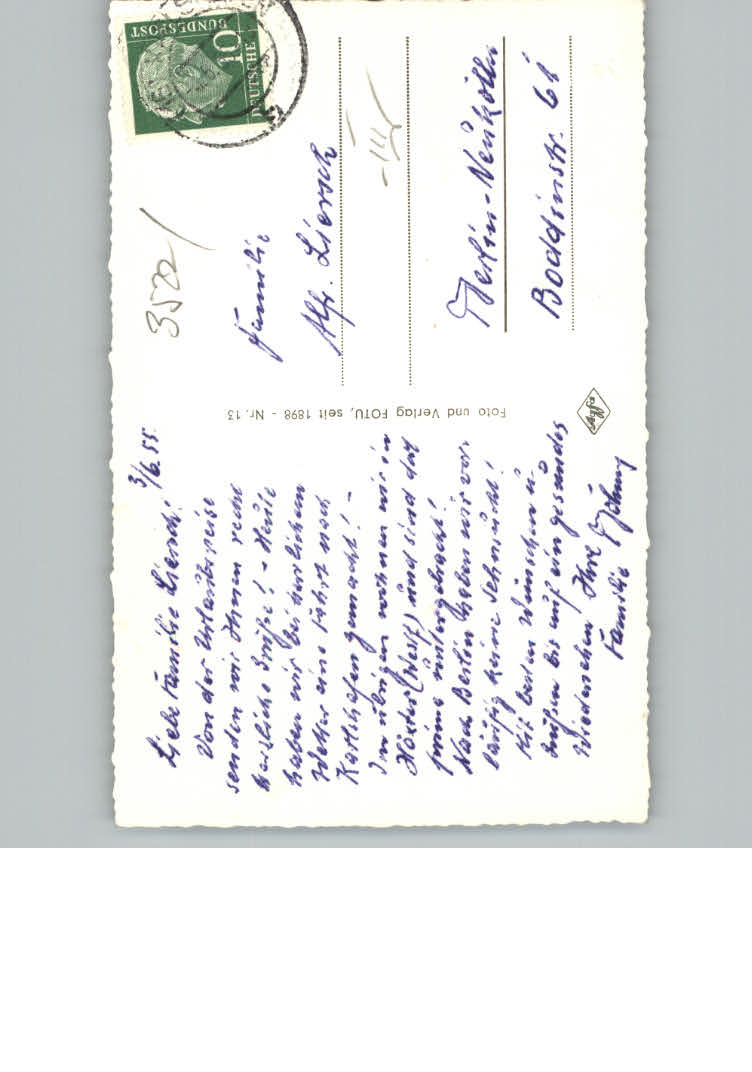 3/6.55.
Liebe Familie Liersch!
Von der Urlaubsreise
senden wir Ihnen recht
herzliche Grüße! - Heute
haben wir bei herrlichem
Wetter eine Fahrt nach
Karlshafen gemacht! -
Im übrigen wohnen wir in
Höxter (Westf) und sind dort
prima untergebracht!
Nach Berlin haben wir vor-
läufig keine Sehnsucht!
Mit besten Wünschen u.
Grüßen bis auf ein gesundes
Wiedersehen Ihre
Familie
Foto und Verlag FOTU, seit 1898 - Nr. 13
Agfa
DEUTSCHE
BUNDESPOST
10
3522/
Familie
Alfr. Liersch
Berlin-Neukölln
Boddinstr. 61